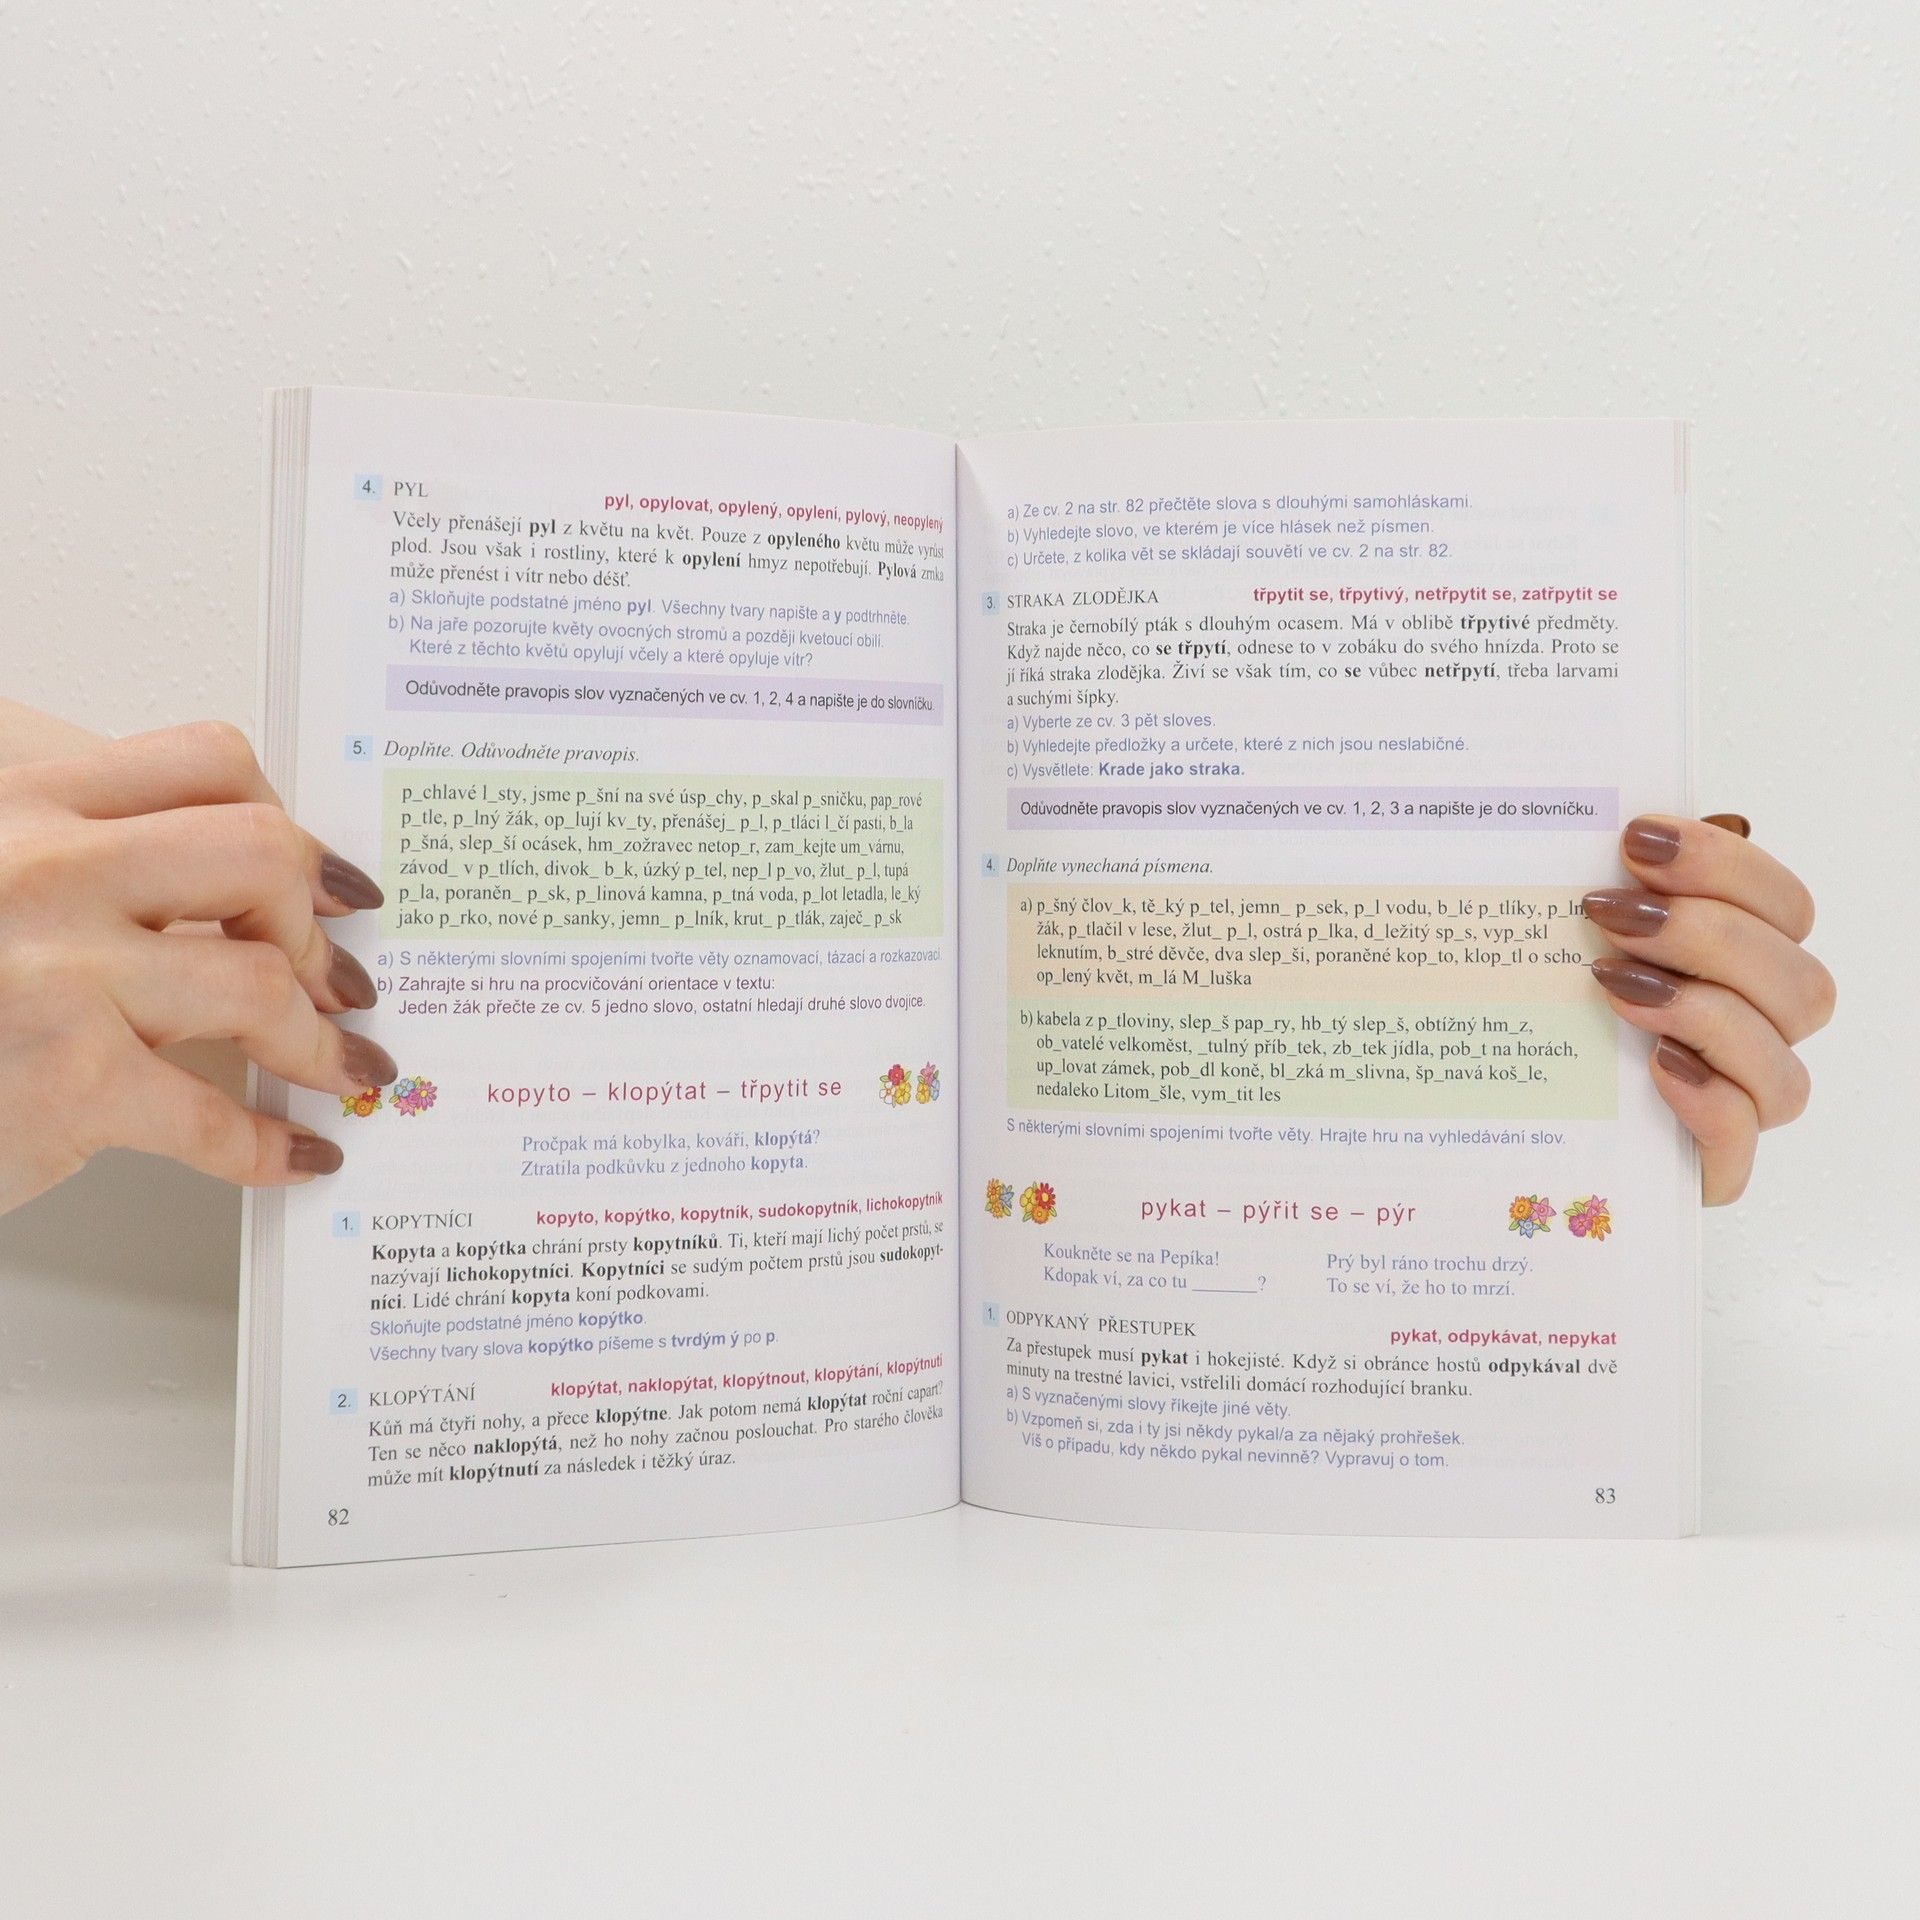 4. PYL
pyl, opylovat, opylený, opylení, pylový, neopylený
Včely přenášejí pyl z květu na květ. Pouze z opyleného květu může vyrůst
plod. Jsou však i rostliny, které k opylení hmyz nepotřebují. Pylová zrnka
může přenést i vítr nebo déšť.
a) Skloňujte podstatné jméno pyl. Všechny tvary napište a y podtrhněte.
b) Na jaře pozorujte květy ovocných stromů a později kvetoucí obilí.
Které z těchto květů opylují včely a které opyluje vítr?
Odůvodněte pravopis slov vyznačených ve cv. 1, 2, 4 a napište je do slovníčku.
5. Doplňte. Odůvodněte pravopis.
p_chlavé l_sty, jsme p_šní na své úsp_chy, p_skal p_sničku, pap_rové
p_tle, p_lný žák, op_lují kv_ty, přenášej_ p_l, p_tláci l_čí pasti, b_la
p_šná, slep_ší ocásek, hm_zožravec netop_r, zam_kejte um_várnu,
závod_ v p_tlích, divok_ b_k, úzký p_tel, nep_l p_vo, žlut_ p_l, tupá
p_la, poraněn_ p_sk, p_linová kamna, p_tná voda, p_lot letadla, le_ký
jako p_rko, nové p_sanky, jemn_ p_lník, krut_ p_tlák, zaječ_ p_sk
a) S některými slovními spojeními tvořte věty oznamovací, tázací a rozkazovací.
b) Zahrajte si hru na procvičování orientace v textu:
Jeden žák přečte ze cv. 5 jedno slovo, ostatní hledají druhé slovo dvojice.
kopyto – klopýtat – třpytit se
Pročpak má kobylka, kováři, klopýtá?
Ztratila podkůvku z jednoho kopyta.
1. KOPYTNÍCI
kopyto, kopýtko, kopytník, sudokopytník, lichokopytník
Kopyta a kopýtka chrání prsty kopytníků. Ti, kteří mají lichý počet prstů, se
nazývají lichokopytníci. Kopytníci se sudým počtem prstů jsou sudokopyt-
níci. Lidé chrání kopyta koní podkovami.
Skloňujte podstatné jméno kopýtko.
Všechny tvary slova kopýtko píšeme s tvrdým ý po p.
2. KLOPÝTÁNÍ
klopýtat, naklopýtat, klopýtnout, klopýtání, klopýtnutí
Kůň má čtyři nohy, a přece klopýtne. Jak potom nemá klopýtat roční capart?
Ten se něco naklopýtá, než ho nohy začnou poslouchat. Pro starého člověka
může mít klopýtnutí za následek i těžký úraz.
82
a) Ze cv. 2 na str. 82 přečtěte slova s dlouhými samohláskami.
b) Vyhledejte slovo, ve kterém je více hlásek než písmen.
c) Určete, z kolika vět se skládají souvětí ve cv. 2 na str. 82.
3. STRAKA ZLODĚJKA
třpytit se, třpytivý, netřpytit se, zatřpytit se
Straka je černobílý pták s dlouhým ocasem. Má v oblibě třpytivé předměty.
Když najde něco, co se třpytí, odnese to v zobáku do svého hnízda. Proto se
jí říká straka zlodějka. Živí se však tím, co se vůbec netřpytí, třeba larvami
a suchými šípky.
a) Vyberte ze cv. 3 pět sloves.
b) Vyhledejte předložky a určete, které z nich jsou neslabičné.
c) Vysvětlete: Krade jako straka.
Odůvodněte pravopis slov vyznačených ve cv. 1, 2, 3 a napište je do slovníčku.
4. Doplňte vynechaná písmena.
a) p_šný člov_k, tě_ký p_tel, jemn_ p_sek, p_l vodu, b_lé p_tlíky,
žák, p_tlačil v lese, žlut_ p_l, ostrá p_lka, d_ležitý sp_s, vyp_skl
leknutím, b_stré děvče, dva slep_ši, poraněné kop_to, klop_tl o
op_lený květ, m_lá M_luška
b) kabela z p_tloviny, slep_š pap_ry, hb_tý slep_š, obtížný hm_z,
ob_vatelé velkoměst, _tulný příb_tek, zb_tek jídla, pob_t na horách,
up_lovat zámek, pob_dl koně, bl_zká m_slivna, šp_navá koš_le,
nedaleko Litom_šle, vym_tit les
S některými slovními spojeními tvořte věty. Hrajte hru na vyhledávání slov.
pykat – pýřit se – pýr
Koukněte se na Pepíka!
Kdopak ví, za co tu _______?
Prý byl ráno trochu drzý.
To se ví, že ho to mrzí.
1. ODPYKANÝ PŘESTUPEK
pykat, odpykávat, nepykat
Za přestupek musí pykat i hokejisté. Když si obránce hostů odpykával dvě
minuty na trestné lavici, vstřelili domácí rozhodující branku.
a) S vyznačenými slovy říkejte jiné věty.
b) Vzpomeň si, zda i ty jsi někdy pykal/a za nějaký prohřešek.
Víš o případu, kdy někdo pykal nevinně? Vypravuj o tom.
83